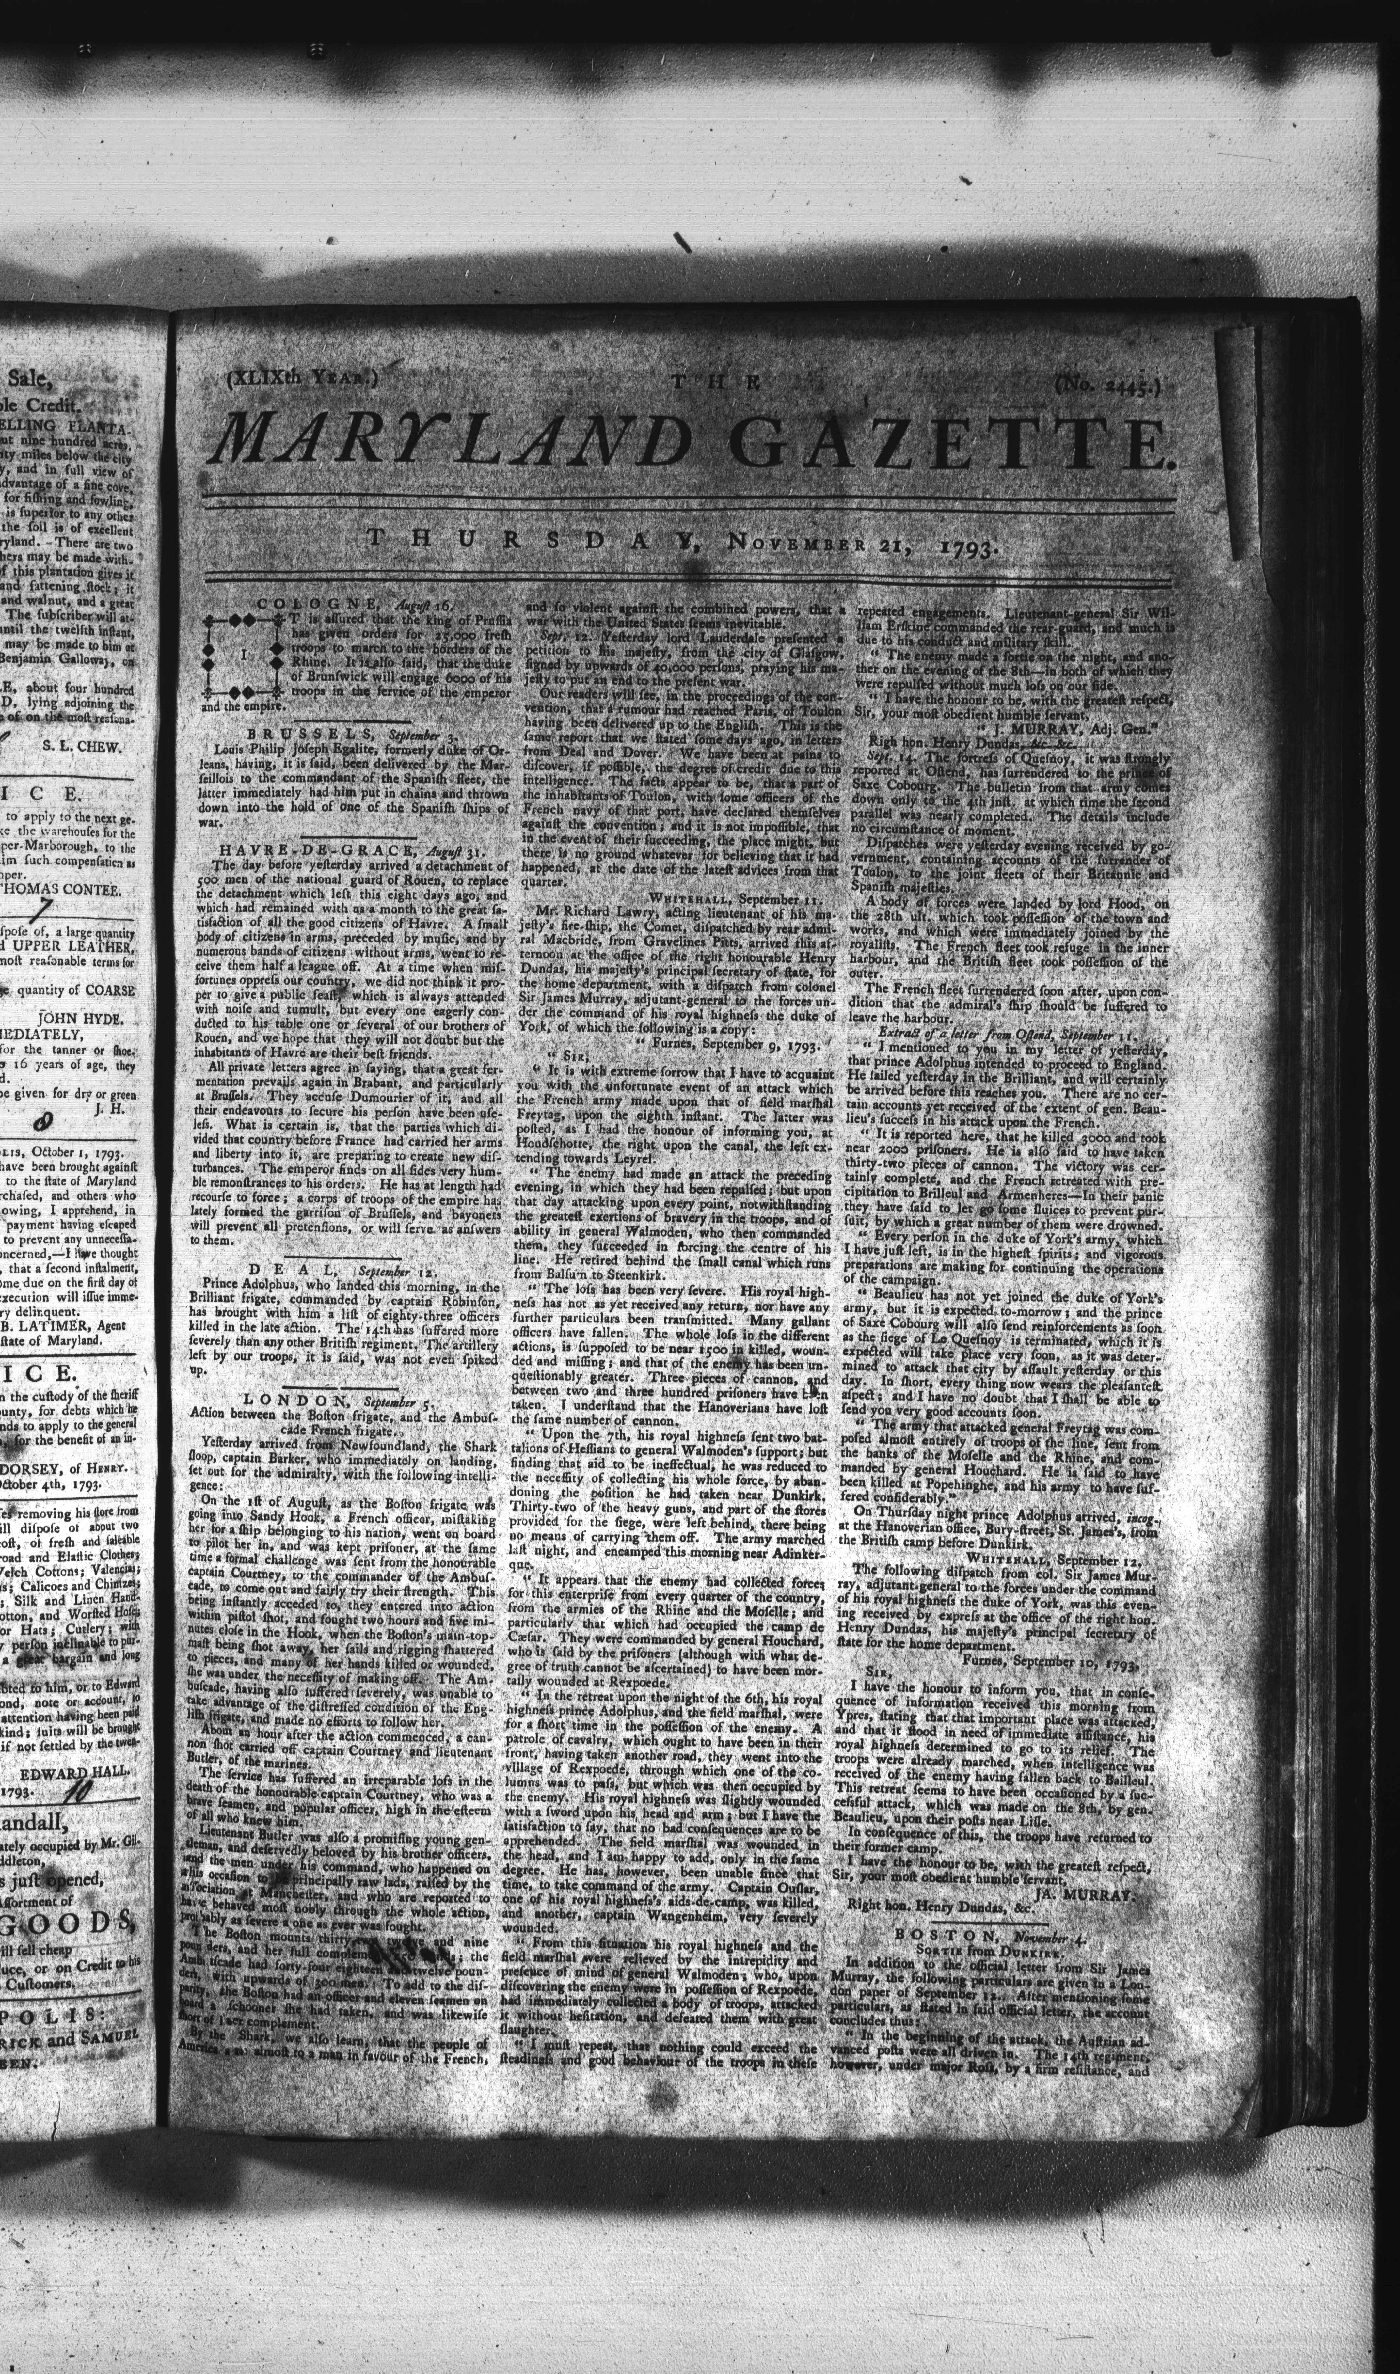 Sale,
ble Credit.
ELLING PLANTA-
ut nine hundred acres,
ty miles below the city
y, and in full view of
advantage of a fine cove,
for fishing and fowling,
is superior to any other
the soil is of excellent
ryland. - There are two
hers may be made with-
of this plantation gives it
and fattening stock; it
and walnut, and a great
The subscriber will at-
until the twelfth instant,
may be made to him at
Benjamin Galloway, on
LE, about four hundred
D, lying adjoining the
e of on the most reasona-
S. L. CHEW.
I C E.
to apply to the next ge-
ke the warehouses for the
per-Marborough, to the
im such compensation as
nper.
THOMAS CONTEE.
7
spose of, a large quantity
d UPPER LEATHER,
most reasonable terms for
ge quantity of COARSE
JOHN HYDE.
MEDIATELY,
for the tanner or shoe-
16 years of age, they
d.
be given for dry or green
J. H.
8
OLIS, October 1, 1793.
have been brought against
to the state of Maryland
rchased, and others who
owing, I apprehend, in
payment having escaped
to prevent any unnecessa-
oncerned,—I have thought
, that a second instalment,
ome due on the first day of
execution will issue imme-
ry delinquent.
B. LATIMER, Agent
state of Maryland.
I C E.
n the custody of the sheriff
ounty, for debts which he
nds to apply to the general
for the benefit of an in-
DORSEY, of HENRY.
October 4th, 1793.
es removing his store from
ill dispose of about two
cost, of fresh and saleable
road and Elastic Clothes;
Welch Cottons; Valencias;
s; Calicoes and Chintzes;
; Silk and Linen Hand-
otton, and Worsted Hose;
or Hats; Cutlery; with
y person inclinable to pur-
a great bargain and long
bted to him, or to Edward
ond, note or account, to
attention having been paid
kind; suits will be brought
if not settled by the twen-
EDWARD HALL.
1793. 10
andall,
ately occupied by Mr. Gil-
ddleton,
s just opened,
Assortment of
GOODS,
ill sell cheap
uce, or on Credit to his
Customers.
POLIS:
RICK and SAMUEL
EEN.
(XLIXth YEAR.)
T H E
(No. 2445.)
MARYLAND GAZETTE.
THURSDAY, NOVEMBER 21, 1793.
COLOGNE, August 16.
IT is assured that the king of Prussia
has given orders for 25,000 fresh
troops to march to the borders of the
Rhine. It is also said, that the duke
of Brunswick will engage 6000 of his
troops in the service of the emperor
and the empire.
BRUSSELS, September 3.
Louis Philip Joseph Egalite, formerly duke of Or-
leans, having, it is said, been delivered by the Mar-
seillois to the commandant of the Spanish fleet, the
latter immediately had him put in chains and thrown
down into the hold of one of the Spanish ships of
war.
HAVRE-DE-GRACE, August 31.
The day before yesterday arrived a detachment of
500 men of the national guard of Rouen, to replace
the detachment which left this eight days ago, and
which had remained with us a month to the great sa-
tisfaction of all the good citizens of Havre. A small
body of citizens in arms, preceded by music, and by
numerous bands of citizens without arms, went to re-
ceive them half a league off. At a time when mis-
fortunes oppress our country, we did not think it pro-
per to give a public feast, which is always attended
with noise and tumult, but every one eagerly con-
ducted to his table one or several of our brothers of
Rouen, and we hope that they will not doubt but the
inhabitants of Havre are their best friends.
All private letters agree in saying, that a great fer-
mentation prevails again in Brabant, and particularly
at Brussels. They accuse Dumourier of it, and all
their endeavours to secure his person have been use-
less. What is certain is, that the parties which di-
vided that country before France had carried her arms
and liberty into it, are preparing to create new dis-
turbances. The emperor finds on all sides very hum-
ble remonstrances to his orders. He has at length had
recourse to force; a corps of troops of the empire has
lately formed the garrison of Brussels, and bayonets
will prevent all pretensions, or will serve as answers
to them.
DEAL, September 12.
Prince Adolphus, who landed this morning, in the
Brilliant frigate, commanded by captain Robinson,
has brought with him a list of eighty-three officers
killed in the late action. The 14th has suffered more
severely than any other British regiment. The artillery
left by our troops, it is said, was not even spiked
up.
LONDON, September 5.
Action between the Boston frigate, and the Ambus-
cade French frigate.
Yesterday arrived from Newfoundland, the Shark
sloop, captain Barker, who immediately on landing,
set out for the admiralty, with the following intelli-
gence:
On the 1st of August, as the Boston frigate was
going into Sandy Hook, a French officer, mistaking
her for a ship belonging to his nation, went on board
to pilot her in, and was kept prisoner, at the same
time a formal challenge was sent from the honourable
captain Courtney, to the commander of the Ambus-
cade, to come out and fairly try their strength. This
being instantly acceded to, they entered into action
within pistol shot, and fought two hours and five mi-
nutes close in the Hook, when the Boston's main-top-
mast being shot away, her sails and rigging shattered
to pieces, and many of her hands killed or wounded,
she was under the necessity of making off. The Am-
buscade, having also suffered severely, was unable to
take advantage of the distressed condition of the Eng-
lish frigate, and made no efforts to follow her.
About an hour after the action commenced, a can-
non shot carried off captain Courtney and lieutenant
Butler, of the marines.
The service has suffered an irreparable loss in the
death of the honourable captain Courtney, who was a
brave seamen, and popular officer, high in the esteem
of all who knew him.
Lieutenant Butler was also a promising young gen-
tleman, and deservedly beloved by his brother officers,
and the men under his command, who happened on
this occasion to be principally raw lads, raised by the
association at Manchester, and who are reported to
have behaved most nobly through the whole action,
probably as severe a one as ever was fought.
The Boston mounts thirty twelve and nine
pounders, and her full complement ; the
Ambuscade had forty-four eighteen and twelve poun-
ders, with upwards of 300 men. To add to the dis-
parity, the Boston had an officer and eleven seamen on
board a schooner she had taken, and was likewise
short of her complement.
By the Shark, we also learn, that the people of
America are almost to a man in favour of the French,
and so violent against the combined powers, that a
war with the United States seems inevitable.
Sept. 12. Yesterday lord Lauderdale presented a
petition to his majesty, from the city of Glasgow,
signed by upwards of 40,000 persons, praying his ma-
jesty to put an end to the present war.
Our readers will see, in the proceedings of the con-
vention, that a rumour had reached Paris, of Toulon
having been delivered up to the English. This is the
same report that we stated some days ago, in letters
from Deal and Dover. We have been at pains to
discover, if possible, the degree of credit due to this
intelligence. The facts appear to be, that a part of
the inhabitants of Toulon, with some officers of the
French navy of that port, have declared themselves
against the convention; and it is not impossible, that
in the event of their succeeding, the place might, but
there is no ground whatever for believing that it had
happened, at the date of the latest advices from that
quarter.
WHITEHALL, September 11.
Mr. Richard Lawry, acting lieutenant of his ma-
jesty's fire-ship, the Comet, dispatched by rear admi-
ral Macbride, from Gravelines Pitts, arrived this af-
ternoon at the office of the right honourable Henry
Dundas, his majesty's principal secretary of state, for
the home department, with a dispatch from colonel
Sir James Murray, adjutant-general to the forces un-
der the command of his royal highness the duke of
York, of which the following is a copy:
" Furnes, September 9, 1793.
" SIR,
" It is with extreme sorrow that I have to acquaint
you with the unfortunate event of an attack which
the French army made upon that of field marshal
Freytag, upon the eighth instant. The latter was
posted, as I had the honour of informing you, at
Hondschotte, the right upon the canal, the left ex-
tending towards Leyrel.
" The enemy had made an attack the preceding
evening, in which they had been repulsed; but upon
that day attacking upon every point, notwithstanding
the greatest exertions of bravery in the troops, and of
ability in general Walmoden, who then commanded
them, they succeeded in forcing the centre of his
line. He retired behind the small canal which runs
from Balsum to Steenkirk.
" The loss has been very severe. His royal high-
ness has not as yet received any return, nor have any
further particulars been transmitted. Many gallant
officers have fallen. The whole loss in the different
actions, is supposed to be near 1500 in killed, woun-
ded and missing; and that of the enemy has been un-
questionably greater. Three pieces of cannon, and
between two and three hundred prisoners have been
taken. I understand that the Hanoverians have lost
the same number of cannon.
" Upon the 7th, his royal highness sent two bat-
talions of Hessians to general Walmoden's support; but
finding that aid to be ineffectual, he was reduced to
the necessity of collecting his whole force, by aban-
doning the position he had taken near Dunkirk.
Thirty-two of the heavy guns, and part of the stores
provided for the siege, were left behind, there being
no means of carrying them off. The army marched
last night, and encamped this morning near Adinker-
que.
" It appears that the enemy had collected forces
for this enterprise from every quarter of the country,
from the armies of the Rhine and the Moselle; and
particularly that which had occupied the camp de
Cæsar. They were commanded by general Houchard,
who is said by the prisoners (although with what de-
gree of truth cannot be ascertained) to have been mor-
tally wounded at Rexpoede.
" In the retreat upon the night of the 6th, his royal
highness prince Adolphus, and the field marshal, were
for a short time in the possession of the enemy. A
patrole of cavalry, which ought to have been in their
front, having taken another road, they went into the
village of Rexpoede, through which one of the co-
lumns was to pass, but which was then occupied by
the enemy. His royal highness was slightly wounded
with a sword upon his head and arm; but I have the
satisfaction to say, that no bad consequences are to be
apprehended. The field marshal was wounded in
the head, and I am happy to add, only in the same
degree. He has, however, been unable since that
time, to take command of the army. Captain Ouslar,
one of his royal highness's aids-de-camp, was killed,
and another, captain Wangenheim, very severely
wounded.
" From this situation his royal highness and the
field marshal were relieved by the intrepidity and
presence of mind of general Walmoden; who, upon
discovering the enemy were in possession of Rexpoede,
had immediately collected a body of troops, attacked
it without hesitation, and defeated them with great
slaughter.
" I must repeat, that nothing could exceed the
steadiness and good behaviour of the troops in these
repeated engagements. Lieutenant-general Sir Wil-
liam Erskine commanded the rear-guard, and much is
due to his conduct and military skill.
" The enemy made a sortie on the night, and ano-
ther on the evening of the 8th—in both of which they
were repulsed without much loss on our side.
" I have the honour to be, with the greatest respect,
Sir, your most obedient humble servant,
J. MURRAY, Adj. Gen."
Righ hon. Henry Dundas, &c. &c.
Sept. 14. The fortress of Quesnoy, it was strongly
reported at Ostend, has surrendered to the prince of
Saxe Cobourg. The bulletin from that army comes
down only to the 4th inst. at which time the second
parallel was nearly completed. The details include
no circumstance of moment.
Dispatches were yesterday evening received by go-
vernment, containing accounts of the surrender of
Toulon, to the joint fleets of their Britannic and
Spanish majesties.
A body of forces were landed by lord Hood, on
the 28th ult. which took possession of the town and
works, and which were immediately joined by the
royalists. The French fleet took refuge in the inner
harbour, and the British fleet took possession of the
outer.
The French fleet surrendered soon after, upon con-
dition that the admiral's ship should be suffered to
leave the harbour.
Extract of a letter from Ostend, September 11.
" I mentioned to you in my letter of yesterday,
that prince Adolphus intended to proceed to England.
He sailed yesterday in the Brilliant, and will certainly
be arrived before this reaches you. There are no cer-
tain accounts yet received of the extent of gen. Beau-
lieu's success in his attack upon the French.
" It is reported here, that he killed 3000 and took
near 2000 prisoners. He is also said to have taken
thirty-two pieces of cannon. The victory was cer-
tainly complete, and the French retreated with pre-
cipitation to Brilleul and Armenheres—In their panic
they have said to let go some sluices to prevent pur-
suit, by which a great number of them were drowned.
" Every person in the duke of York's army, which
I have just left, is in the highest spirits; and vigorous
preparations are making for continuing the operations
of the campaign.
" Beaulieu has not yet joined the duke of York's
army, but it is expected to-morrow; and the prince
of Saxe Cobourg will also send reinforcements as soon
as the siege of Le Quesnoy is terminated, which it is
expected will take place very soon, as it was deter-
mined to attack that city by assault yesterday or this
day. In short, every thing now wears the pleasantest
aspect; and I have no doubt that I shall be able to
send you very good accounts soon.
" The army that attacked general Freytag was com-
posed almost entirely of troops of the line, sent from
the banks of the Moselle and the Rhine, and com-
manded by general Houchard. He is said to have
been killed at Popehinghe, and his army to have suf-
fered considerably."
On Thursday night prince Adolphus arrived, incog.
at the Hanoverian office, Bury-street, St. James's, from
the British camp before Dunkirk.
WHITEHALL, September 12.
The following dispatch from col. Sir James Mur-
ray, adjutant-general to the forces under the command
of his royal highness the duke of York, was this even-
ing received by express at the office of the right hon.
Henry Dundas, his majesty's principal secretary of
state for the home department.
Furnes, September 10, 1793.
SIR,
I have the honour to inform you, that in conse-
quence of information received this morning from
Ypres, stating that that important place was attacked,
and that it stood in need of immediate assistance, his
royal highness determined to go to its relief. The
troops were already marched, when intelligence was
received of the enemy having fallen back to Bailleul.
This retreat seems to have been occasioned by a suc-
cessful attack, which was made on the 8th, by gen.
Beaulieu, upon their posts near Lisle.
In consequence of this, the troops have returned to
their former camp.
I have the honour to be, with the greatest respect,
Sir, your most obedient humble servant,
JA. MURRAY.
Right hon. Henry Dundas, &c.
BOSTON, November 4.
SORTIE from DUNKIRK.
In addition to the official letter from Sir James
Murray, the following particulars are given in a Lon-
don paper of September 12. After mentioning some
particulars, as stated in said official letter, the account
concludes thus:
" In the beginning of the attack, the Austrian ad-
vanced posts were all driven in. The 14th regiment,
however, under major Ross, by a firm resistance, and